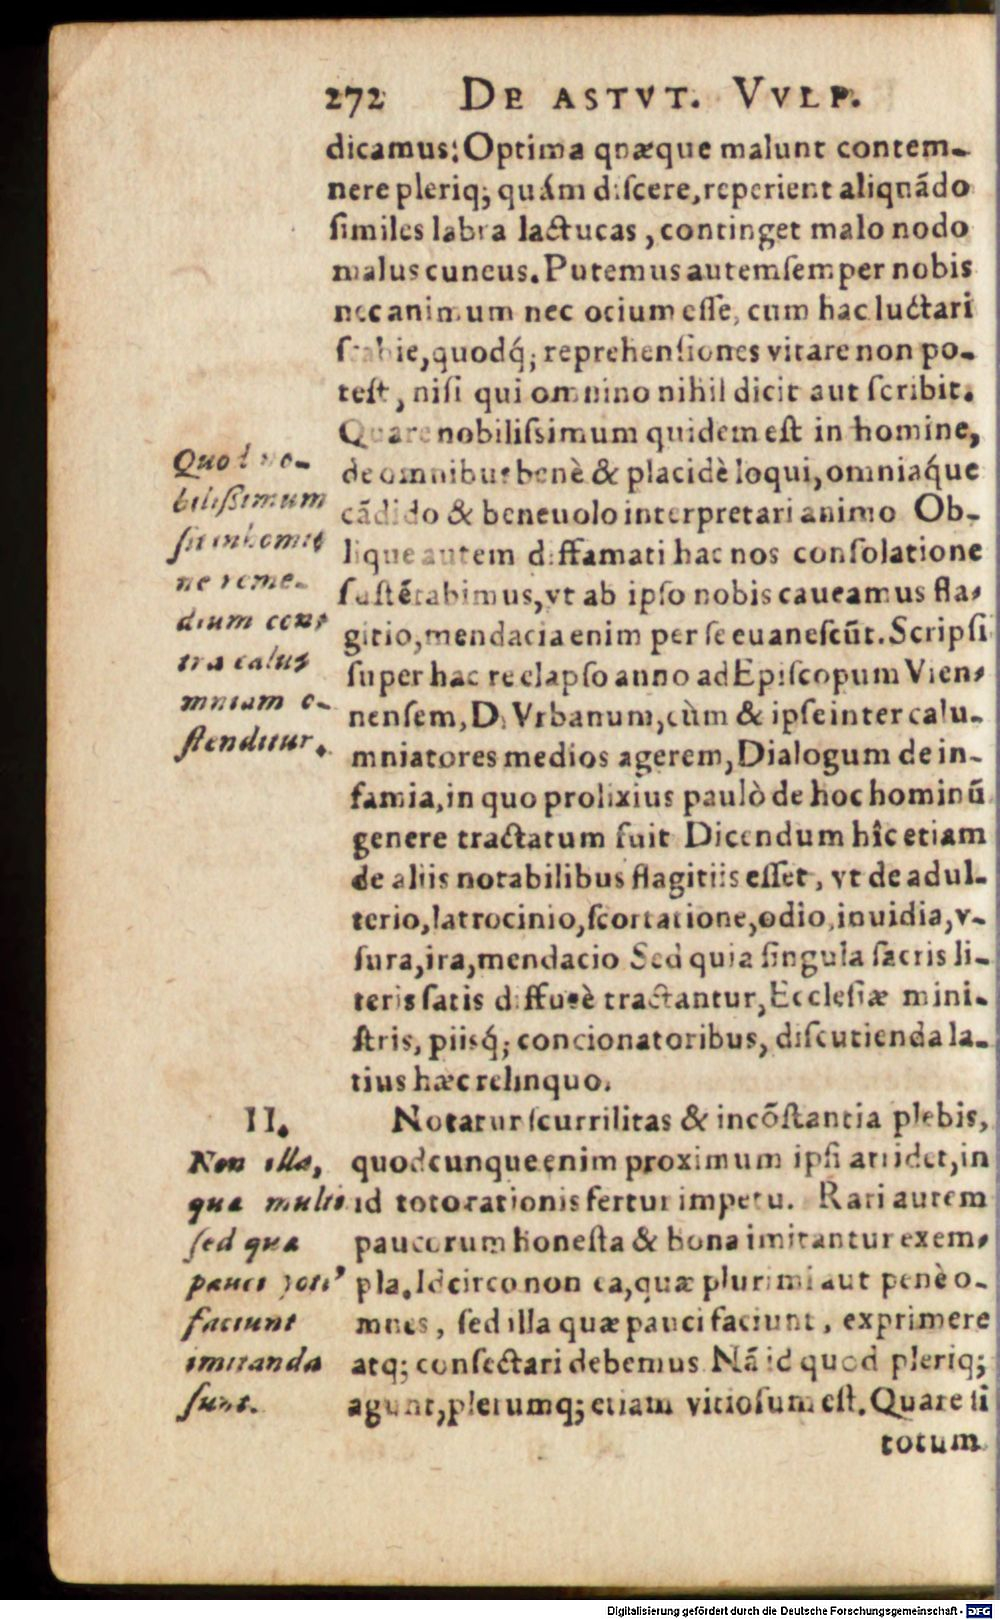 272 DE ASTVT. VVLP.
dicamus: Optima quæque malunt contem-
nere pleriq; quám discere, reperient aliquãdo
similes labra lactucas, continget malo nodo
malus cuneus. Putemus autem semper nobis
nec animum nec ocium esse, cum hac luctari
scabie, quodq́; reprehensiones vitare non po-
test, nisi qui omnino nihil dicit aut scribit.
Quare nobilissimum quidem est in homine,
de omnibus benè & placidè loqui, omniaq́ue
cãdido & beneuolo interpretari animo Ob-
lique autem diffamati hac nos consolatione
sustẽtabimus, vt ab ipso nobis caueamus fla-
gitio, mendacia enim per se euanescũt. Scripsi
super hac re elapso anno ad Episcopum Vien-
nensem, D. Vrbanum, cùm & ipse inter calu-
mniatores medios agerem, Dialogum de in-
famia, in quo prolixius paulò de hoc hominũ
genere tractatum fuit Dicendum hîc etiam
de aliis notabilibus flagitiis esset, vt de adul-
terio, latrocinio, scortatione, odio, inuidia, v-
sura, ira, mendacio Sed quia singula sacris li-
teris satis diffusè tractantur, Ecclesiæ mini-
stris, piisq́; concionatoribus, discutienda la-
tius hæc relinquo.
Quod no-
bilißimum
sit in homi-
ne reme-
dium con-
tra calu-
mniam o-
stenditur.
Notatur scurrilitas & incõstantia plebis,
quodcunque enim proximum ipsi arridet, in
id toto rationis fertur impetu. Rari autem
paucorum honesta & bona imitantur exem-
pla. Idcirco non ea, quæ plurimi aut penè o-
mnes, sed illa quæ pauci faciunt, exprimere
atq; consectari debemus Nã id quod pleriq;
agunt, plerumq; etiam vitiosum est. Quare si
totum
II.
Non illa,
qua multi
sed qua
pauci
faciunt
imitanda
sunt.
Digitalisierung gefördert durch die Deutsche Forschungsgemeinschaft - DFG